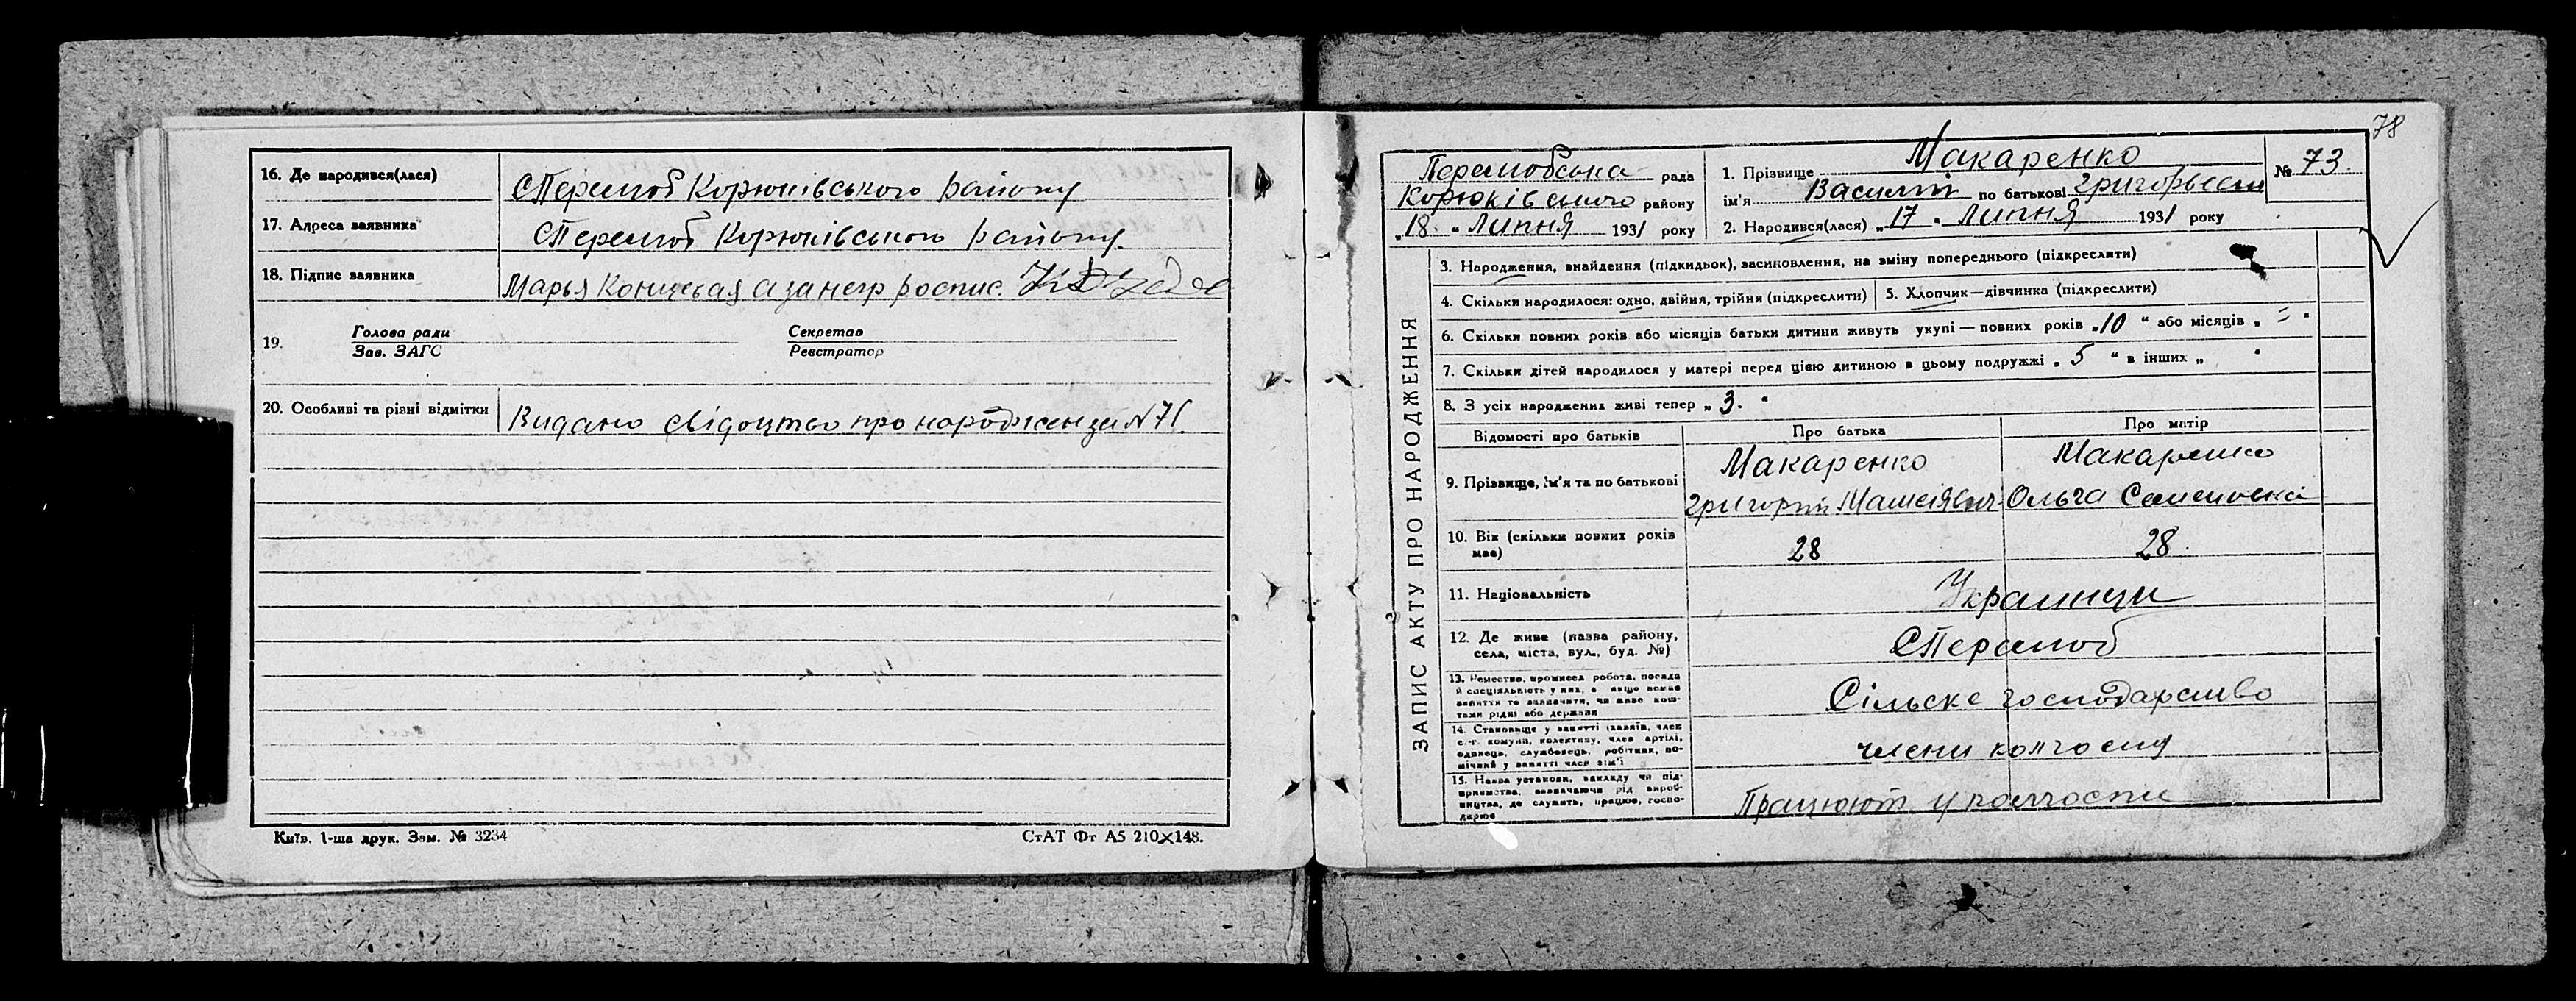 16. Де народився(лася)
С Перелюб Корюківського району
17. Адреса заявника
С Перелюб Корюківського району.
18. Підпис заявника
Марья а за негр роспис.
19.
Голова ради
Зав. ЗАГС
Секретар
Реєстратор
20. Особливі та різні відмітки
Видано свідоцтво про народження N 71.
Київ. 1-ша друк. Зам. № 3234
СтАТ Фт А5 210×148.
78
Перелюбська рада
Корюківського району
„18." Липня 1931 року
1. Прізвище Макаренко
ім'я Василій по батькові Григорьевич
2. Народився(лася) „17" Липня 1931 року
№ 73.
ЗАПИС АКТУ ПРО НАРОДЖЕННЯ
3. Народження, знайдення (підкидьок), засиновлення, на зміну попереднього (підкреслити)
4. Скільки народилося: одно, двійня, трійня (підкреслити)
5. Хлопчик—дівчинка (підкреслити)
6. Скільки повних років або місяців батьки дитини живуть укупі — повних років „10" або місяців „ = "
7. Скільки дітей народилося у матері перед цією дитиною в цьому подружжі „5" в інших „ "
8. З усіх народжених живі тепер „3."
Відомості про батьків
Про батька
Про матір
9. Прізвище, ім'я та по батькові
Макаренко
Григорій
Макаренко
Ольга Семеновна
10. Вік (скільки повних років
має)
28
28.
11. Національність
Украинци
12. Де живе (назва району,
села, міста, вул., буд. №)
С Перелюб
13. Ремество, промисел, робота, посада
й спеціяльність у них, а якщо немає
заняття то зазначити, чи живе кош-
тами рідні або держави
Сільске господарство
14. Становище у занятті (хазяїн, член
с.-г. комуни, колективу, член артілі,
одинець, службовець, робітник, по-
мічний у занятті член сім'ї
члени колгоспу
15. Назва установи, закладу чи під-
приємства, зазначаючи рід вироб-
ництва, де служить, працює, госпо-
дарює
Працюют у колгоспи